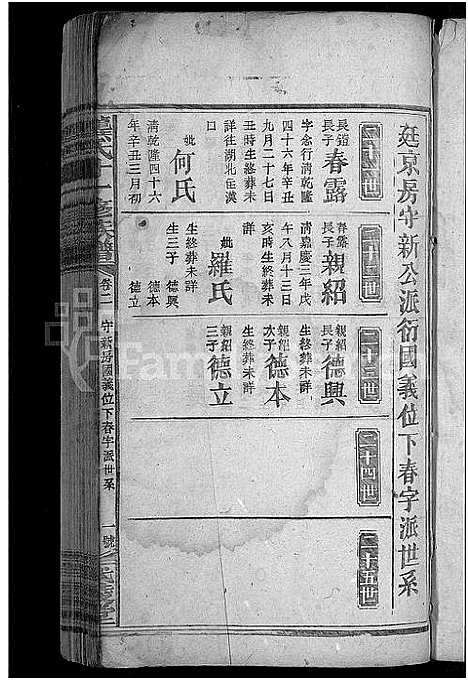 廷京房守新公派衍國義位下春字派世系
二十一世
長鐙
長子
春露
字念行清乾隆
四十六年辛丑
九月二十七日
丑時生終葬未
詳往湖北在漢
口
妣何氏
清乾隆四十六
年辛丑三月初
二十二世
春露
長子
親紹
清嘉慶三年戊
午八月十三日
亥時生終葬未
詳
妣羅氏
生終葬未詳
生三子
德興
德本
德立
二十三世
親紹
長子
德興
生終葬未詳
親紹
次子
德本
生終葬未詳
親紹
三子
德立
二十四世
二十五世
氏十一修族譜
卷二
守新房國義位下春字派世系
一號